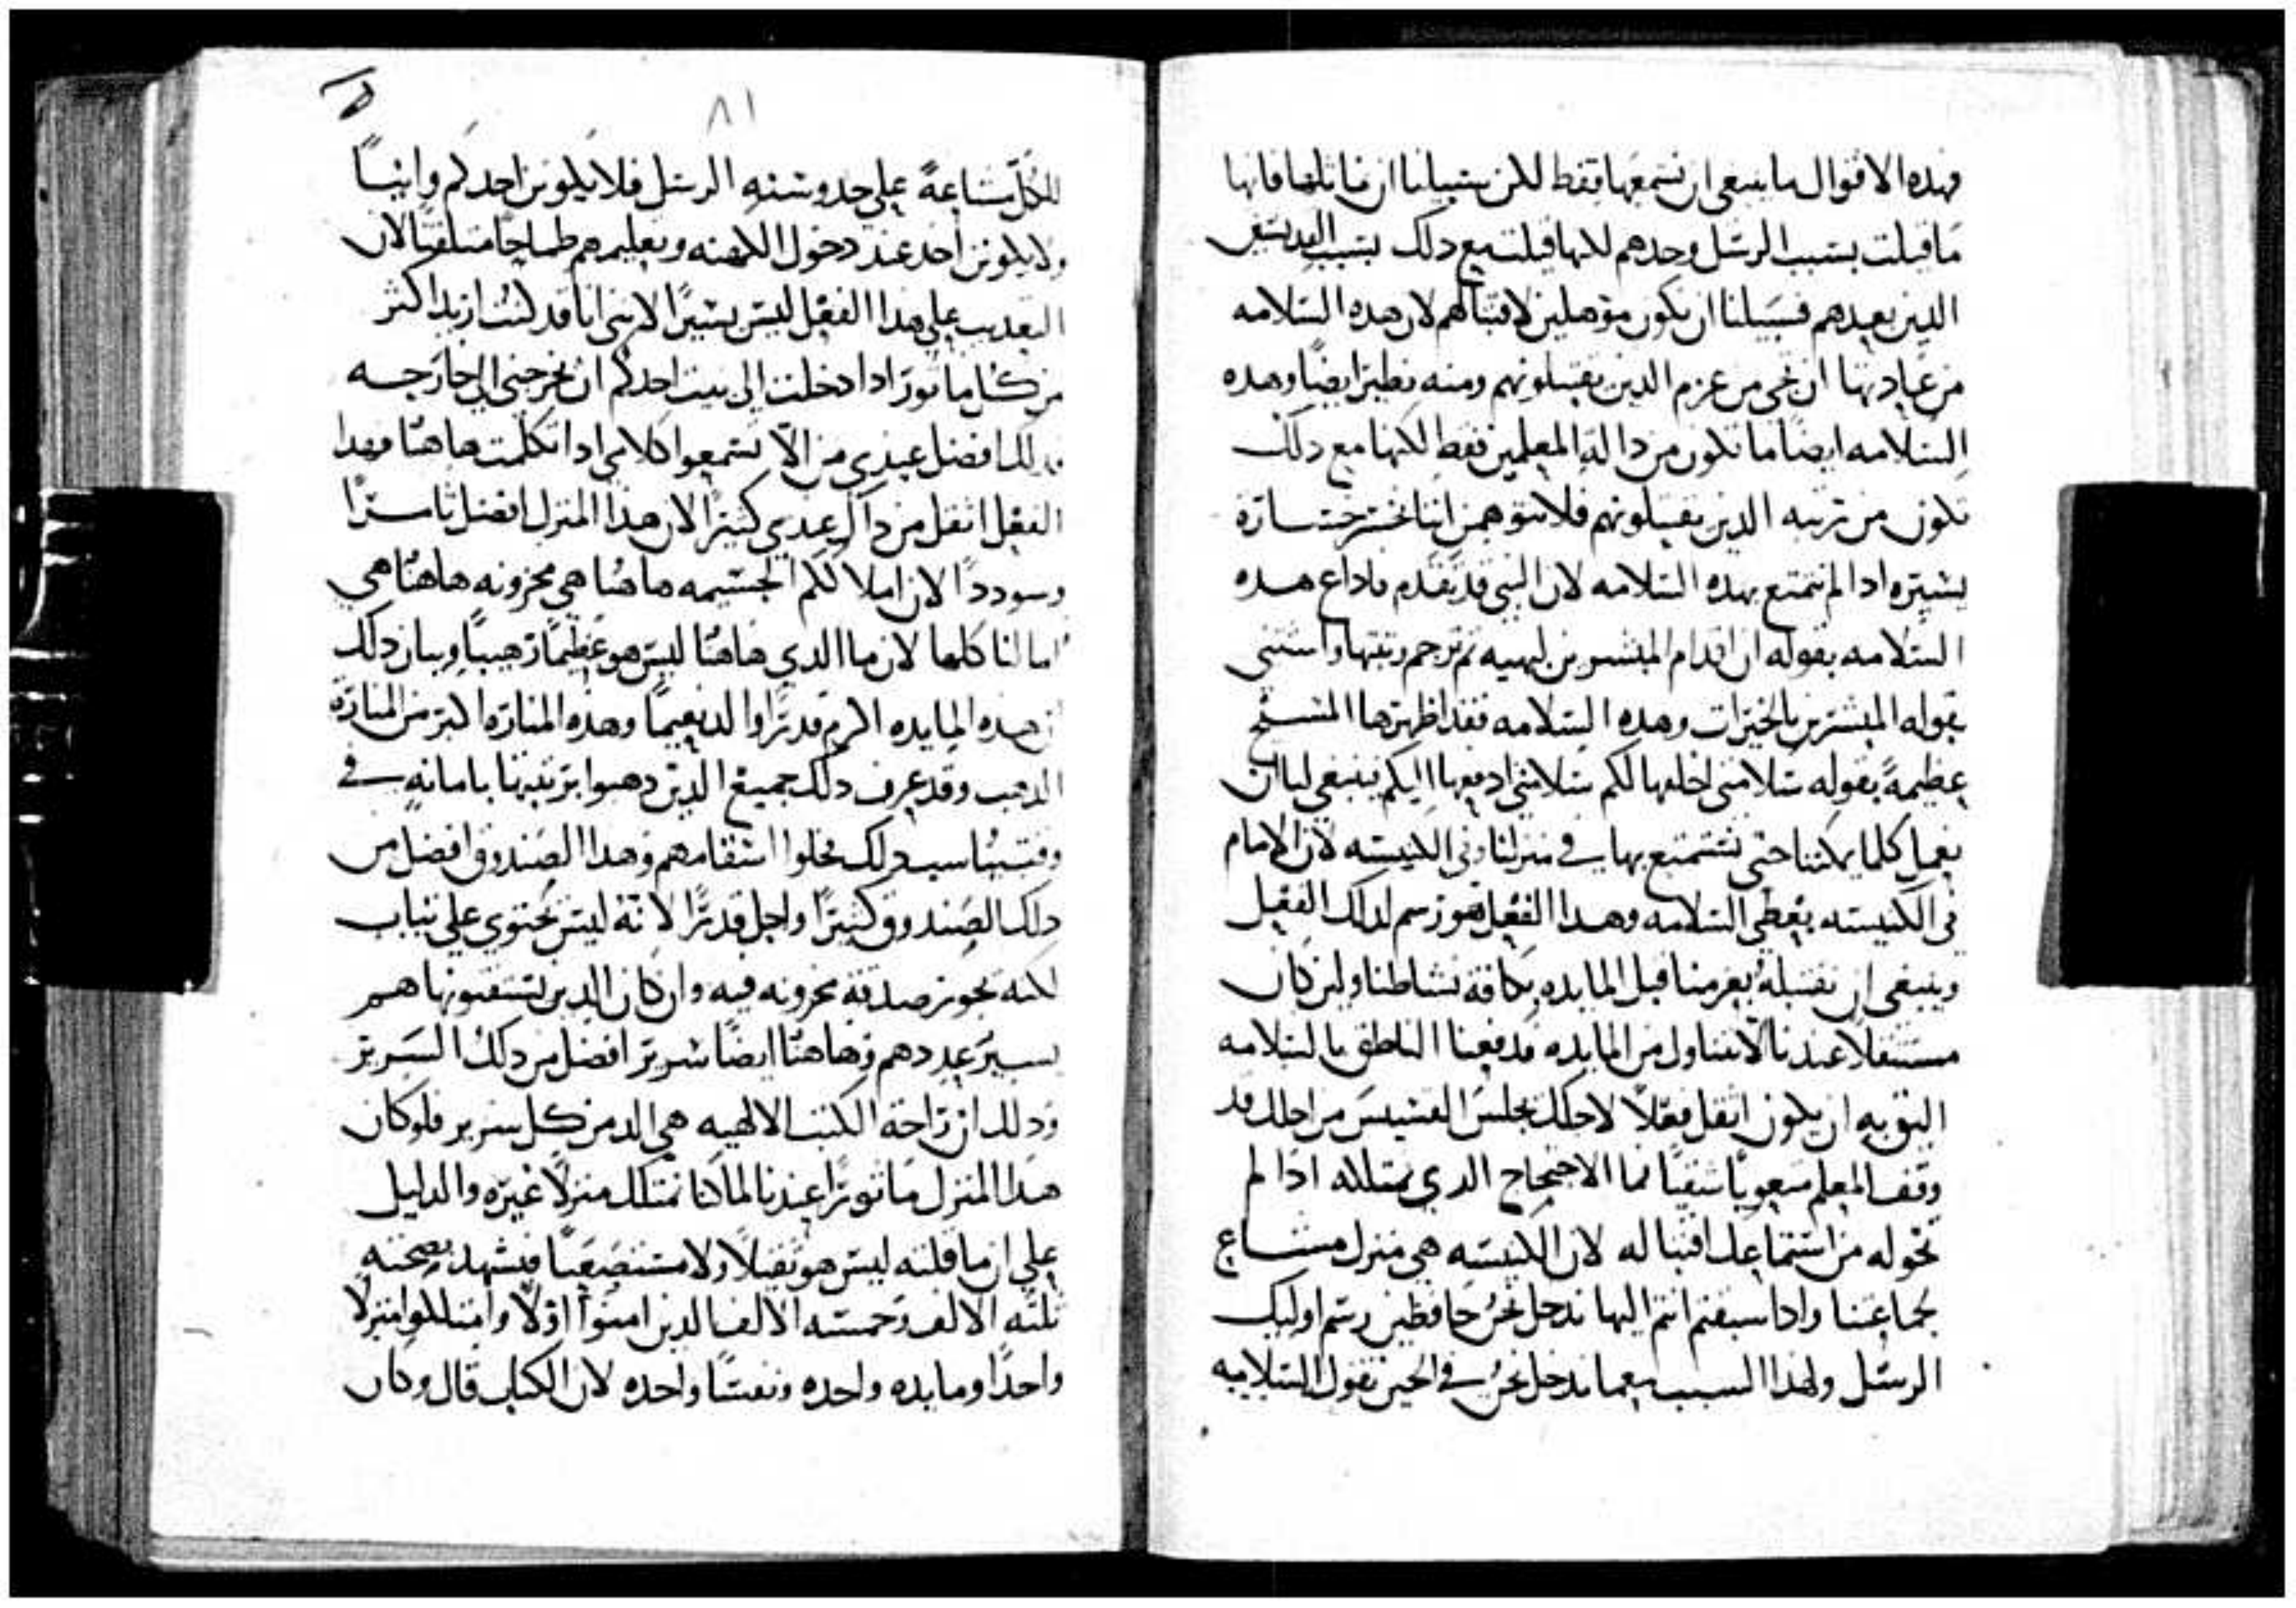 فهده الاقوال ما ينبغي ان نسمعها فقط لكن سبيلنا ان نماثلها فانها
ما قيلت بسبب الرسل وحدهم لكنها قيلت مع دلك بسبب القديسين
الدين بعدهم فسبيلنا ان نكون موهلين لاقتبالهم لان هده السلامه
من عادتها ان تجي من عزم الدين يقبلونهم ومنه تطير ايضًا وهده
السلامه ايضًا ما تكون من دالة المعلمين فقط لكنها مع دلك
تكون من رتبه الدين يقبلونهم فلا نتوهمن اننا نخسر خسارة
يسيره ادا لم نتمتع بهده السلامه لان النبي قد تقدم فاداع هده
السلامه بقوله ان اقدام المبشرين لبهيه ثم ترجم رتبتها واستثنى
بقوله المبشرين بالخيرات وهده السلامه فقد اظهرها المسيح
عظيمةً بقوله سلامتي اخلفها لكم سلامتي ادفعها اليكم ينبغي لنا ان
نعمل كلما يمكننا حتى نستمتع بها في منزلنا وفي الكنيسه لان الامام
في الكنيسه يعطي السلامه وهدا الفعل فهو رسم لدلك الفعل
وينبغي ان نقتبله بعزمنا قبل المايده بكافة نشاطنا ولين كان
مستثقلًا عندنا الا نتناول من المايده فدفعنا الناطق بالسلامه
اليق به ان يكون اثقل فعلًا لاجلك يجلس القسيس من اجلك قد
وقف المعلم متعوبًا شقيًا فما الاحتجاج الدي تمتلكه ادا لم
تخوله من استماعك اقتبالًا له لان الكنيسه هي منزل مشاع
لجماعتنا وادا سبقتم انتم اليها ندخل نحن حافظين رسم اوليك
الرسل ولهدا السبب معما ندخل نحن في الحين نقول السلامه
٨١
للكل مشاعةً على حدو سنه الرسل فلا يكونن احدكم وانيًا
ولا يكونن احد عند دخول الكهنه وتعليمهم طماحًا متلفتًا لان
التعديب على هدا الفعل ليس يسيرًا لانني انا قد كنت اريد اكثر
من كل ماتور ادا دخلت الى بيت احدكم ان تخرجني الى خارجه
فدلك افضل عندي من الّا تسمعوا كلامي ادا تكلمت هاهنا فهدا
الفعل اثقل من داك عندي كثيرًا لان هدا المنزل افضل ثامرًا
وسوددًا لان املاككم الجسيمه هاهنا هي مخزونه هاهنا هي
امالنا كلها لان ما الدي هاهنا ليس هو عظيمًا رهيبًا وبيان دلك
ان هده المايده اكرم قدرًا والد نعيمًا وهده المناره اكبر من المناره
الدهب وقد عرف دلك جميع الدين دهبوا بزيتها بامانه في
وقت مناسب فدلك حلوا اسقامهم وهدا الصندوق افضل من
دلك الصندوق كثيرًا واجل قدرًا لانه ليس يحتوي على تياب
لكنه يحوز صدقة مخزونه فيه وان كان الدين يستقنونها هم
يسير عددهم وهاهنا ايضًا سرير افضل من دلك السرير
ودلك ان راحة الكتب الالهيه هي الد من كل سرير فلو كان
هدا المنزل ماتورًا عندنا لما كنا نمتلك منزلًا غيره والدليل
على ان ما قلته ليس هو تقيلًا ولا مستصعبًا فيشهد بصحته
تلته الالف وخمسه الالف الدين امنوا اولًا وامتلكوا منزلًا
واحدًا ومايده واحده ونفسًا واحده لان الكتاب قال وكان